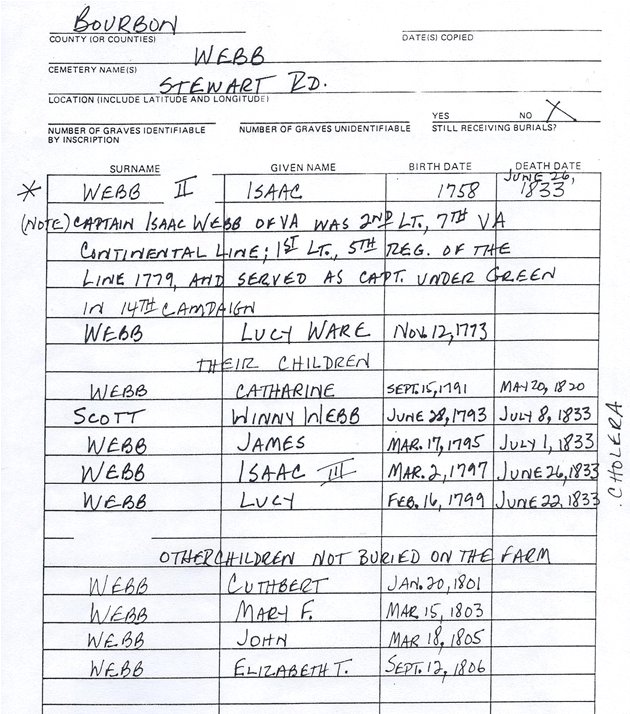 BOURBON
COUNTY (OR COUNTIES) DATE(S) COPIED
WEBB
CEMETERY NAME(S)
STEWART RD.
LOCATION (INCLUDE LATITUDE AND LONGITUDE)
YES NO X
NUMBER OF GRAVES IDENTIFIABLE BY INSCRIPTION NUMBER OF GRAVES UNIDENTIFIABLE STILL RECEIVING BURIALS?
SURNAME GIVEN NAME BIRTH DATE DEATH DATE
* WEBB II ISAAC 1758 JUNE 26, 1833
(NOTE) CAPTAIN ISAAC WEBB OF VA WAS 2ND LT., 7TH VA
CONTINENTAL LINE; 1ST LT., 5TH REG. OF THE
LINE 1779, AND SERVED AS CAPT. UNDER GREEN
IN 14TH CAMPAIGN
WEBB LUCY WARE NOV. 12, 1773
THEIR CHILDREN
WEBB CATHARINE SEPT. 15, 1791 MAY 20, 1820
SCOTT WINNY WEBB JUNE 28, 1793 JULY 8, 1833
WEBB JAMES MAR. 17, 1795 JULY 1, 1833
WEBB ISAAC III MAR. 2, 1797 JUNE 26, 1833
WEBB LUCY FEB. 16, 1799 JUNE 22, 1833
CHOLERA
OTHER CHILDREN NOT BURIED ON THE FARM
WEBB CUTHBERT JAN. 20, 1801
WEBB MARY F. MAR. 15, 1803
WEBB JOHN MAR 18, 1805
WEBB ELIZABETH T. SEPT. 12, 1806